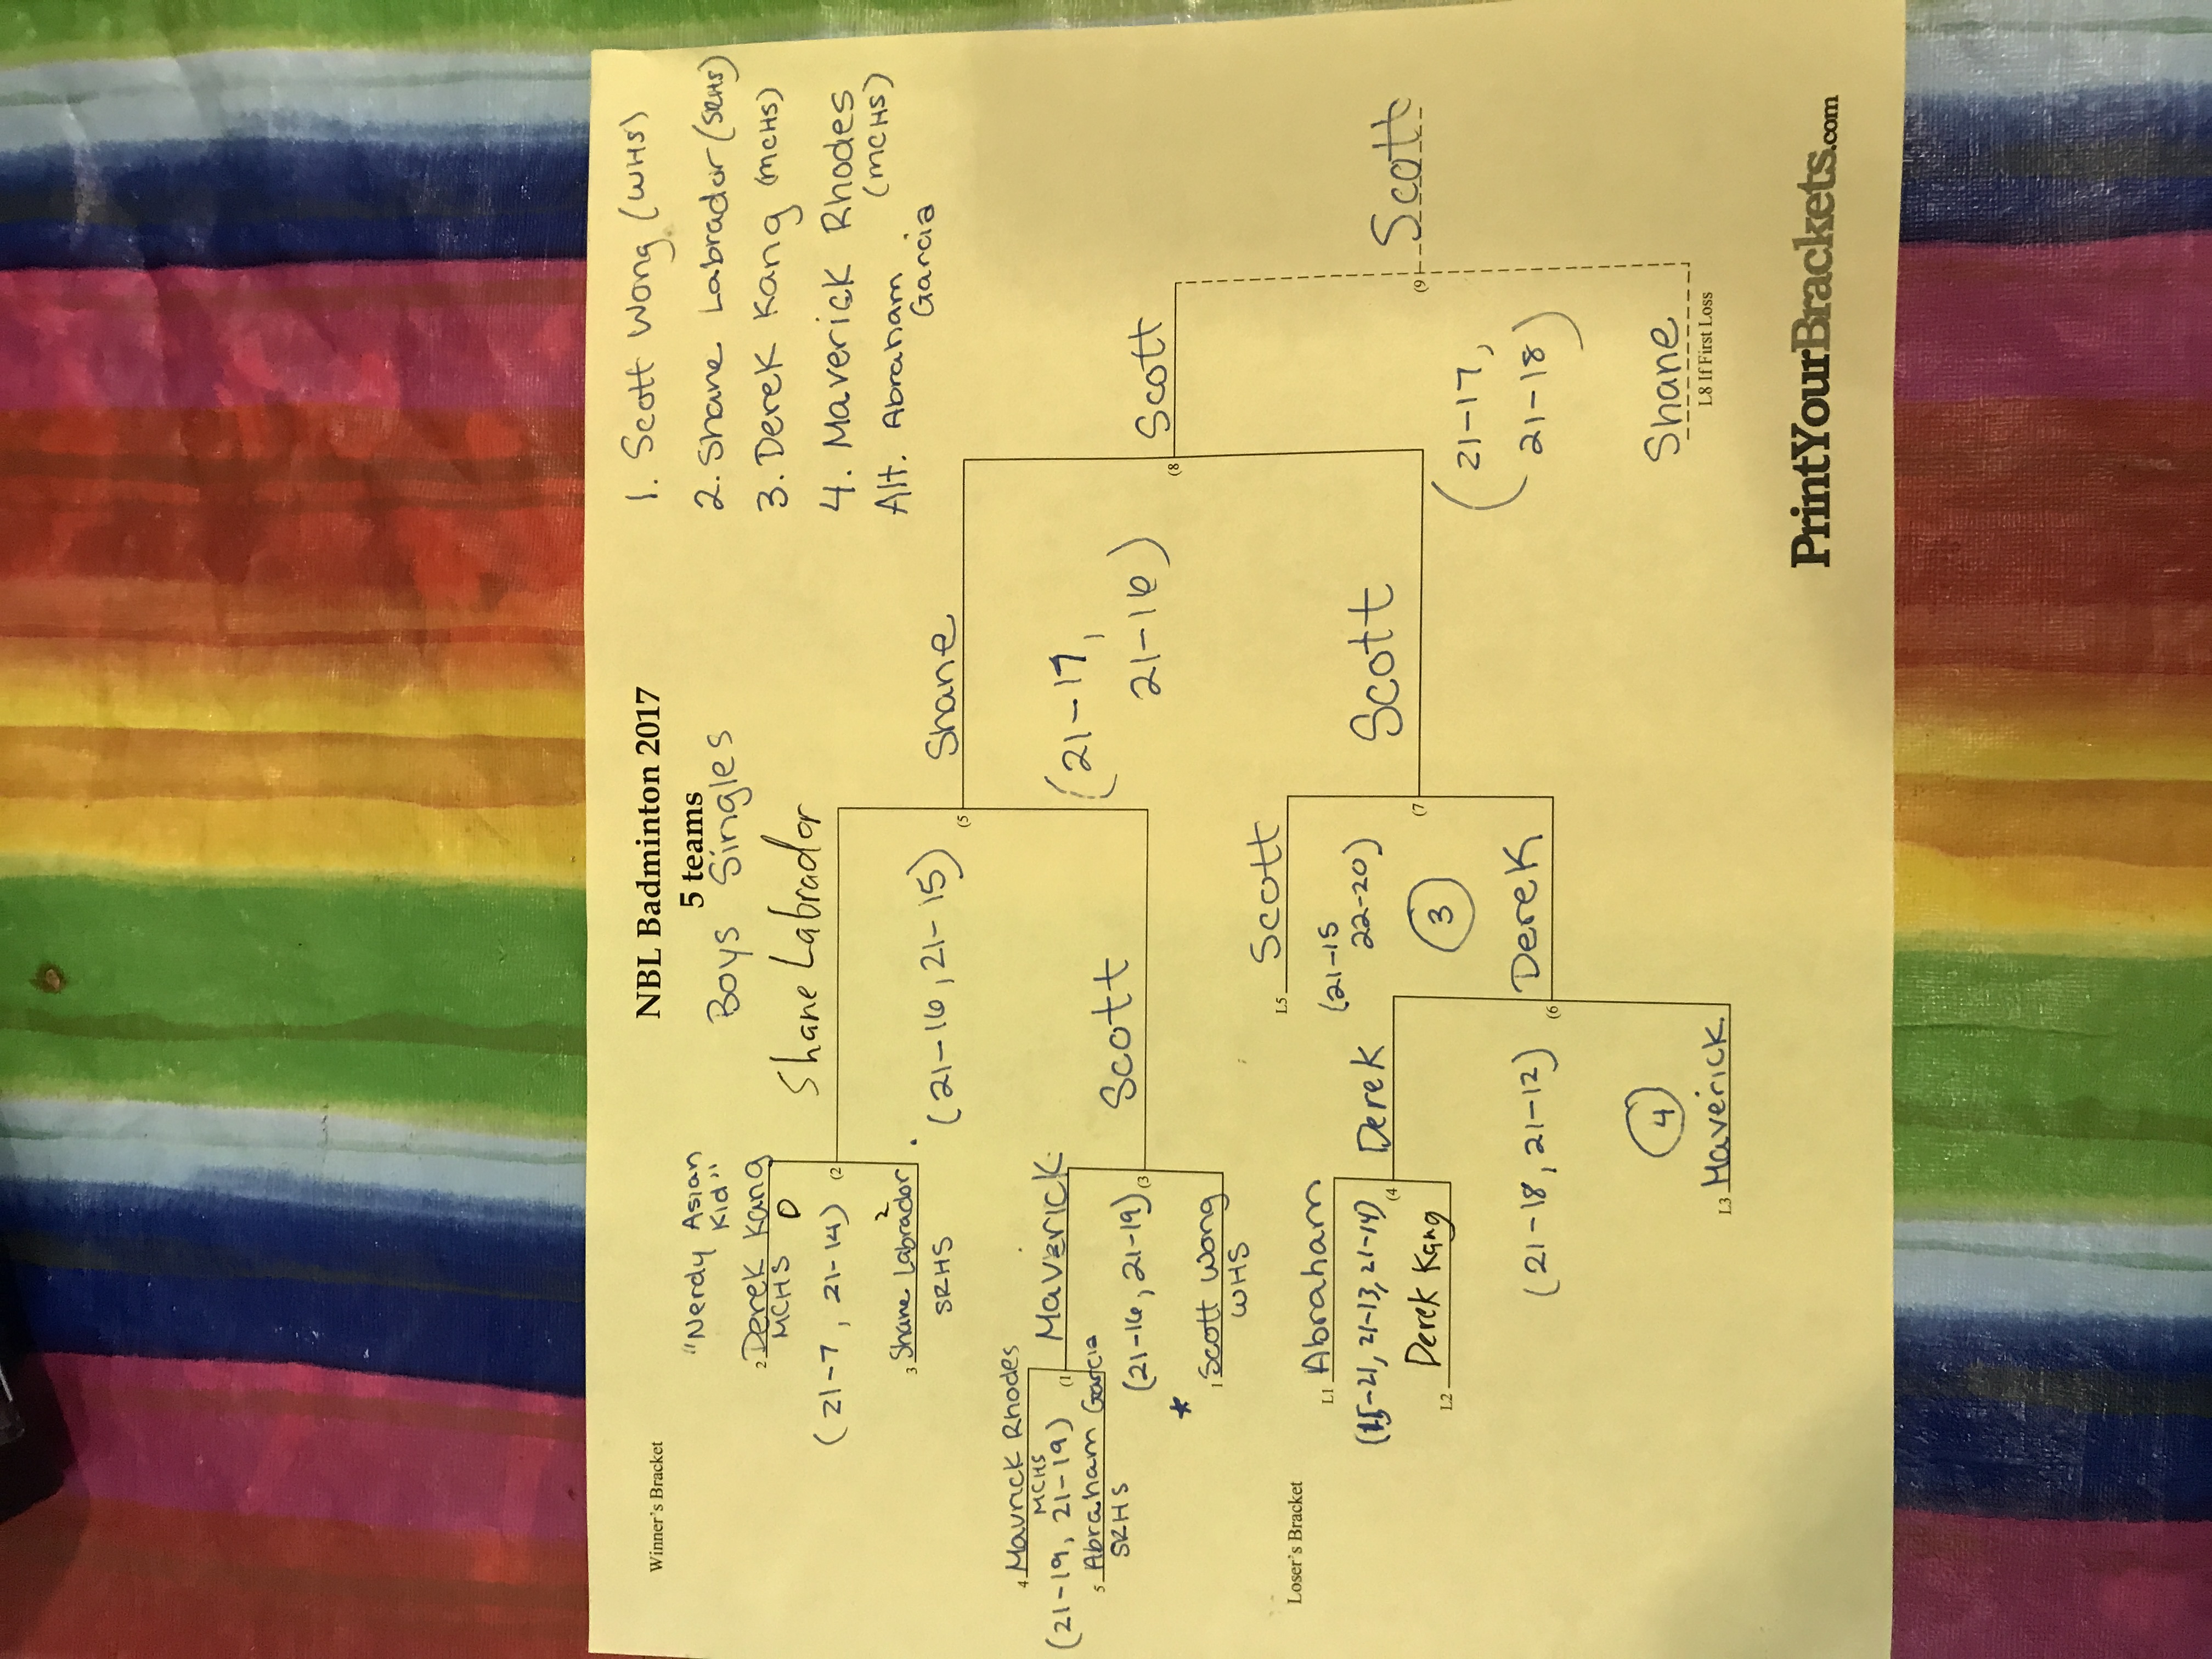 NBL Badminton 2017
5 teams
Boys Singles
Winner's Bracket
1. Scott Wong (WHS)
2. Shane Labrador (SRHS)
3. Derek Kang (MCHS)
4. Maverick Rhodes
(MCHS)
Alt. Abraham
Garcia
"Nerdy Asian
Kid"
2 Derek Kang
MCHS 0
(21-7, 21-14)
(2
3 Shane Labrador 2
SRHS
Shane Labrador
(21-16, 21-15)
(5
Shane
4 Mavrick Rhodes
MCHS
(21-19, 21-19)
(1
5 Abraham Garcia
SRHS
Maverick
(21-16, 21-19)
(3
* 1 Scott Wong
WHS
Scott
(21-17,
21-16)
(8
Scott
Loser's Bracket
L1 Abraham
(15-21, 21-13, 21-14)
(4
L2 Derek Kang
Derek
(21-18, 21-12)
(6
4
L3 Maverick
L5 Scott
(21-15
22-20)
(7
3
Derek
Scott
(21-17,
21-18)
(9
Scott
Shane
L8 If First Loss
PrintYourBrackets.com